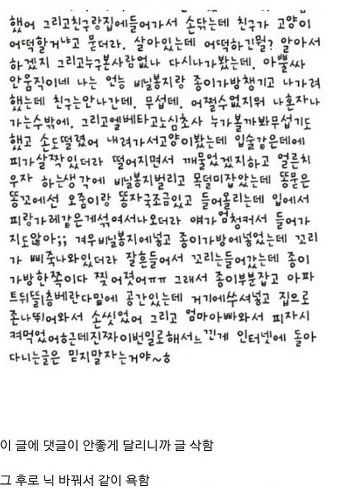 했어 그리고친구랑집에들어가서 손닦는데 친구가 고양이
어떡할거냐고 묻더라. 살아있는데 어떡하긴뭘? 알아서
하겠지 그리고누구본사람없나 다시나가봤는데. 아뿔싸
안움직이네 나는 언능 비닐봉지랑 종이가방챙기고 나가려
했는데 친구는안나간데. 무섭데. 어쩔수없지뭐 나혼자나
가는수밖에. 그리고엘베타고노심초사 누가볼까봐무섭기도
했고 손도떨렸어 내려가서고양이봤는데 입술같은데에
피가살짝있더라 떨어지면서 깨물었겠지하고 얼른치
우자 하는생각에 비닐봉지벌리고 목덜미잡았는데 똥묻은
똥꼬에선 오줌이랑 똥자국조금있고 들어올리는데 입에서
피랑가레같은게섞여서나오더라 얘가엄청커서 들어가
지도않아;; 겨우비닐봉지에넣고 종이가방에넣었는데 꼬리
가 삐죽나와있더라 잘흔들어서 꼬리는들어갔는데 종이
가방한쪽이다 찢어졌어ㅠㅠ 그래서 종이부분잡고 아파
트뒤뜰1층베란다밑에 공간있는데 거기에쑤셔넣고 집으로
존나뛰어와서 손씻었어 그리고 엄마아빠와서 피자시
켜먹었어ㅎ근데진짜이번일로해서느낀게 인터넷에 돌아
다니는글은 믿지말자는거야~ㅎ
이 글에 댓글이 안좋게 달리니까 글 삭함
그 후로 닉 바꿔서 같이 욕함